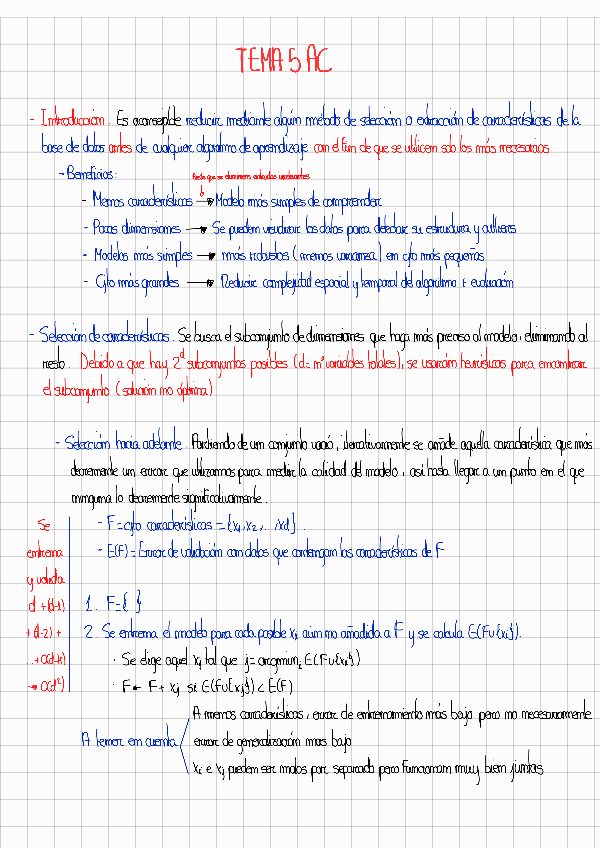 TEMA 5 AC
- Introducción. Es aconsejable reducir mediante algún método de selección o extracción de características de la
base de datos antes de cualquier algoritmo de aprendizaje con el fin de que se utilicen solo los más necesarios
- Beneficios:
Puede que se eliminen entradas irrelevantes
- Menos características → Modelo más simples de comprender
- Pocas dimensiones → Se pueden visualizar los datos para detectar su estructura y outliers
- Modelos más simples → más robustos (menos varianza) en cjto más pequeños
- Cjto más grandes → Reducir complejidad espacial y temporal del algoritmo t evaluación
- Selección de características. Se busca el subconjunto de dimensiones que haga más preciso al modelo, eliminando al
resto. Debido a que hay 2^d subconjuntos posibles (d = nº variables totales), se usarán heurísticos para encontrar
el subconjunto (solución no óptima)
- Selección hacia adelante. Partiendo de un conjunto vacío, iterativamente se añade aquella característica que más
decremente un error que utilizamos para medir la calidad del modelo, así hasta llegar a un punto en el que
ninguna lo decremente significativamente.
- F = cjto características = {x1, x2, ..., xd}
- E(F) = Error de validación con datos que contengan las características de F
Se
entrena
y valida
d + (d-1)
+ (d-2) +
..+ (d-k)
→ O(d²)
1. F = { }
2. Se entrena el modelo para cada posible xi aún no añadida a F y se calcula E(F∪{xi}).
· Se elige aquel xj tal que j = argmin_i E(F∪{xi})
· F ← F + xj si E(F∪{xj}) < E(F)
A tener en cuenta
A menos características, error de entrenamiento más bajo pero no necesariamente
error de generalización mas bajo
xi e xj pueden ser malos por separado pero funcionan muy bien juntas